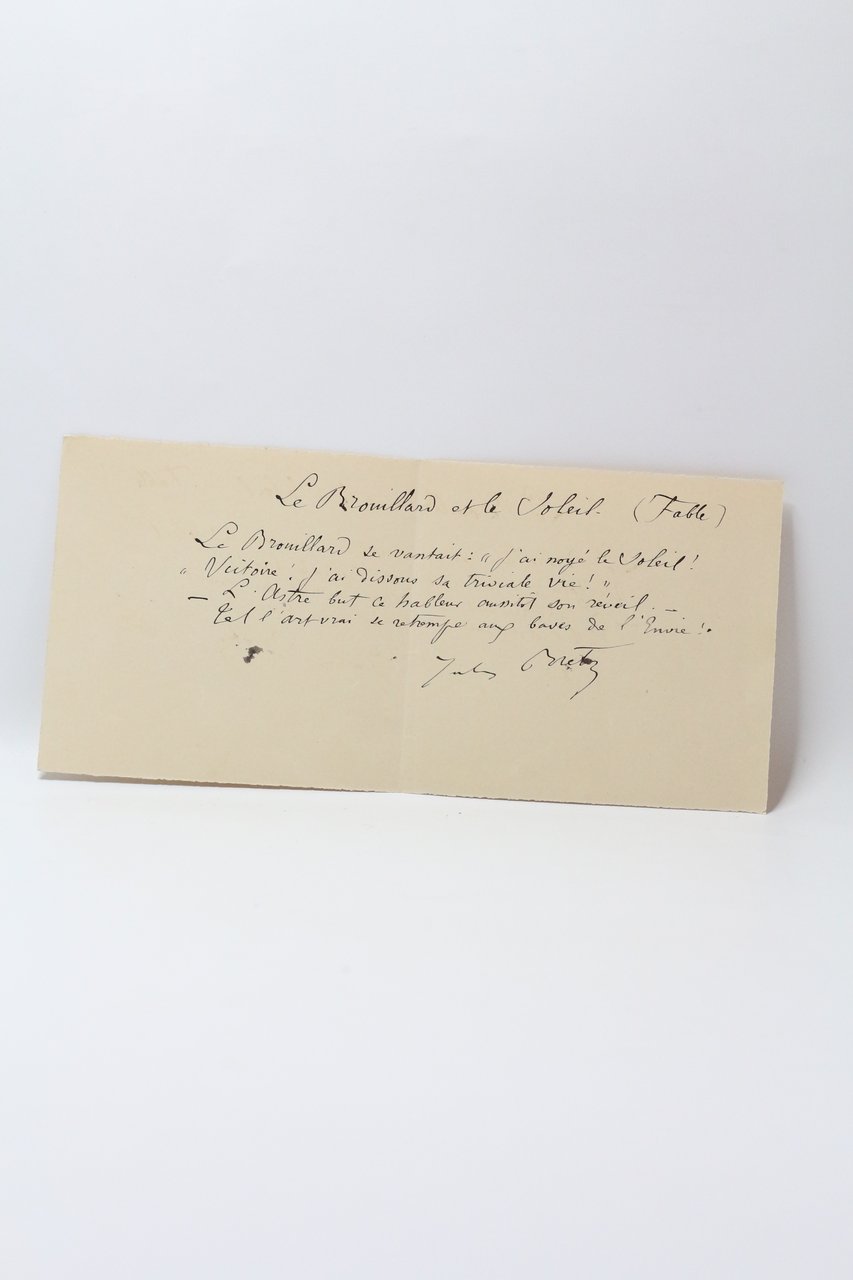 Le Brouillard et le Soleil. (Fable)
Le Brouillard se vantait : " J'ai noyé le Soleil !
" Victoire ! J'ai dissous sa triviale vie ! "
— L'Astre but ce hableur aussitôt son réveil. —
Tel l'art vrai se retrempe aux baves de l'Envie !.
Jules